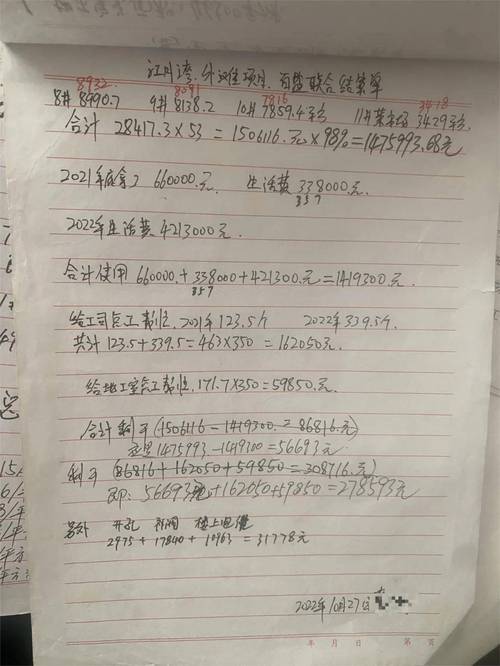 江月湾.外滩项目.百盛联合结算单
8932 8091 7816 3418
8井8990.7 9井8138.2 10井7859.4平方 11井 3429平方
合计 28417.3×53=1506116.元×98%=1475993.68元
2021年底拿了660000.元. 生活费338000元.
357
2022年生活费4213000元.
合计使用660000.+338000+421300.元=1419300.元.
357
给公司点工制作.2021年123.5个 2022年339.5个.
共计123.5+339.5=463×350=162050元.
给地工室点工制作.171.7×350=59850.元.
合计剩下(1506116-1419300.=86816.元)
1475993-1419300=56693元
剩下(86816+162050+59850=308716.元)
即:56693元+162050+59850=278593元
另外 开孔 楼上
2975+17840+10963=31778元
2022年10月27日
年 月 日 第 页